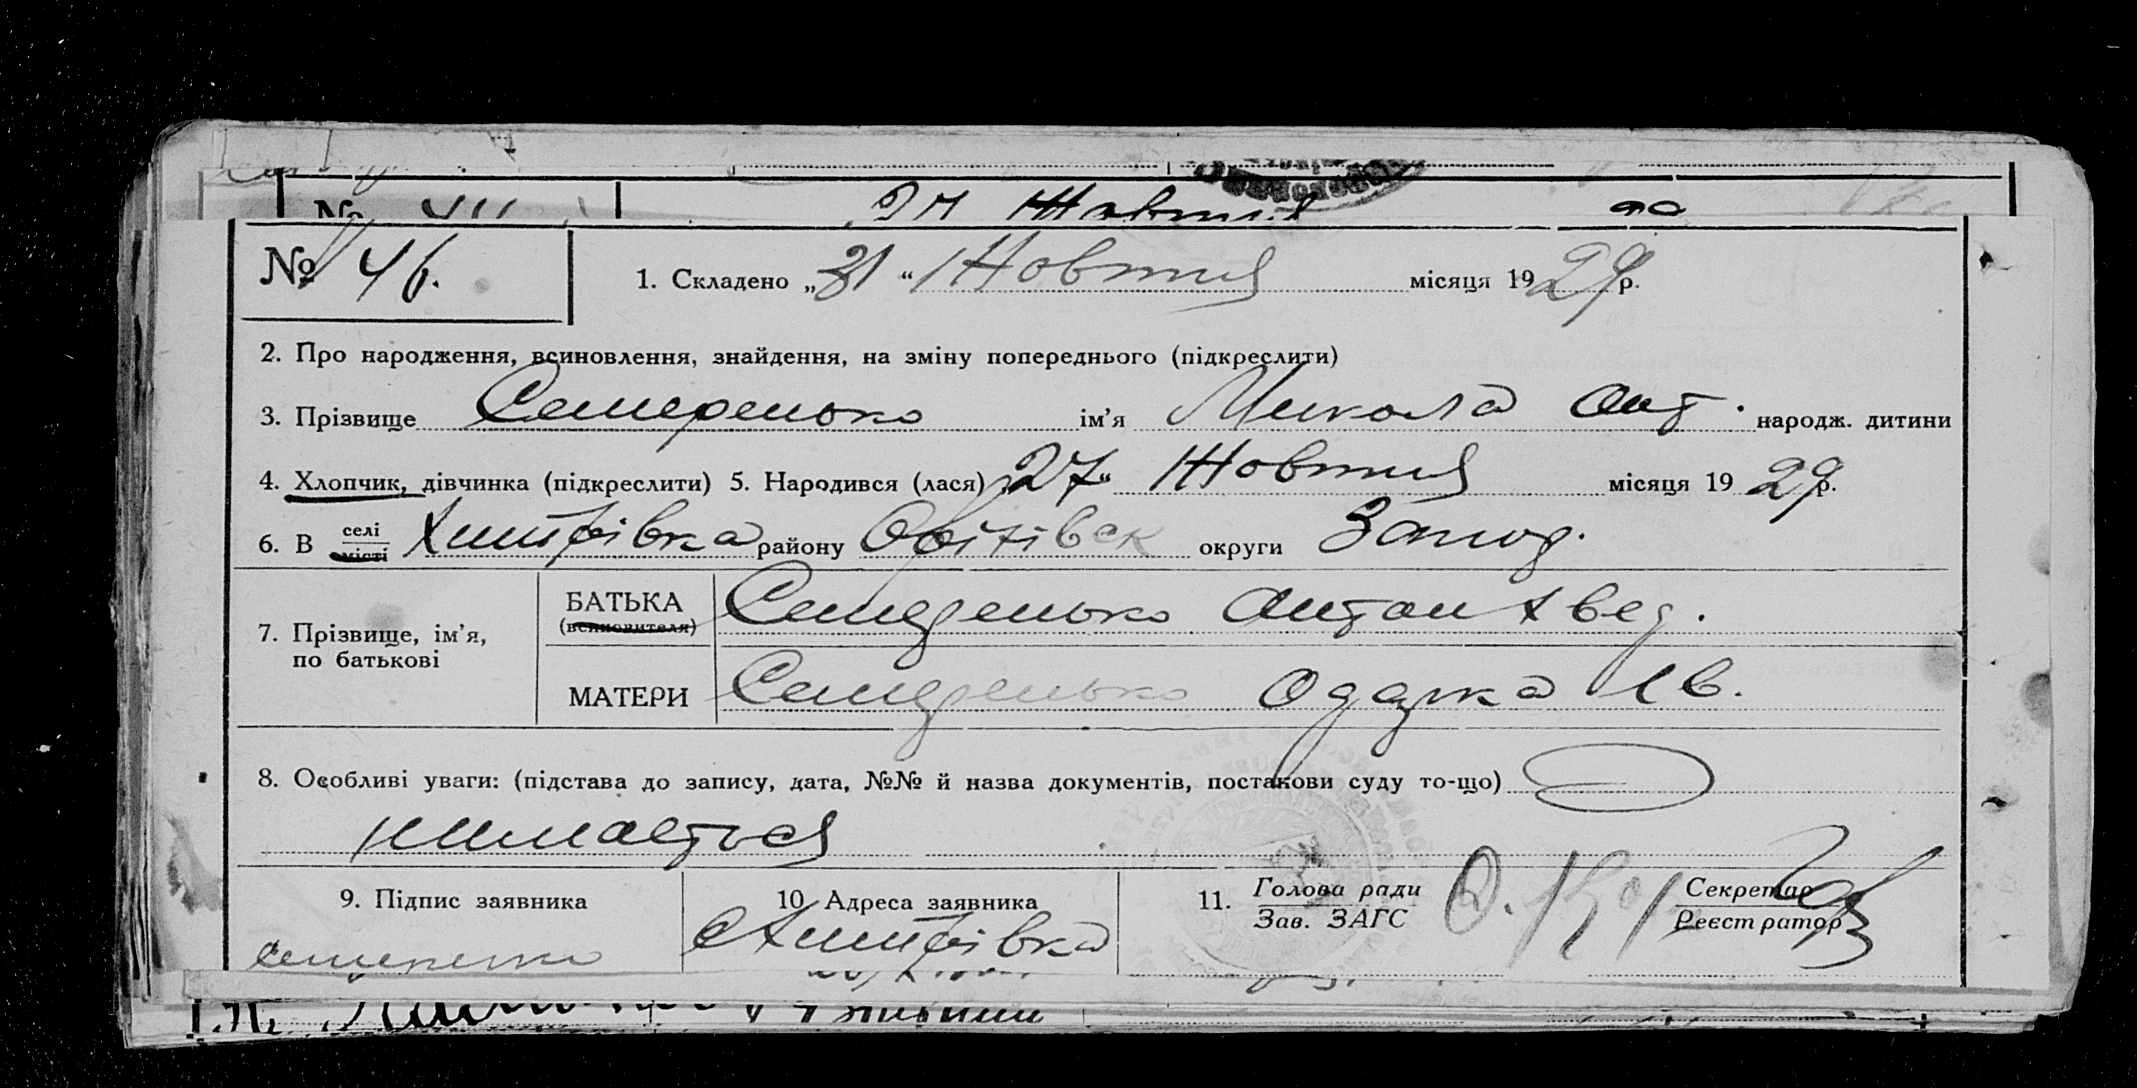 № 46. 1. Складено „31“ Жовтня місяця 1929 р.
2. Про народження, всиновлення, знайдення, на зміну попереднього (підкреслити)
3. Прізвище Семеренько ім’я Микола Ант. народж. дитини
4. Хлопчик, дівчинка (підкреслити) 5. Народився (лася) „27“ Жовтня місяця 1929 р.
6. В селі місті Хитрівка району округи
7. Прізвище, ім’я, по батькові
БАТЬКА (всиновителя) Семеренько Антон Хвед.
МАТЕРИ Семеренько Одарка Ів.
8. Особливі уваги: (підстава до запису, дата, №№ й назва документів, постанови суду то-що)
9. Підпис заявника
10. Адреса заявника
11. Голова ради Зав. ЗАГС
Секретар Реєстратор
Семеренко
с Хитрівка